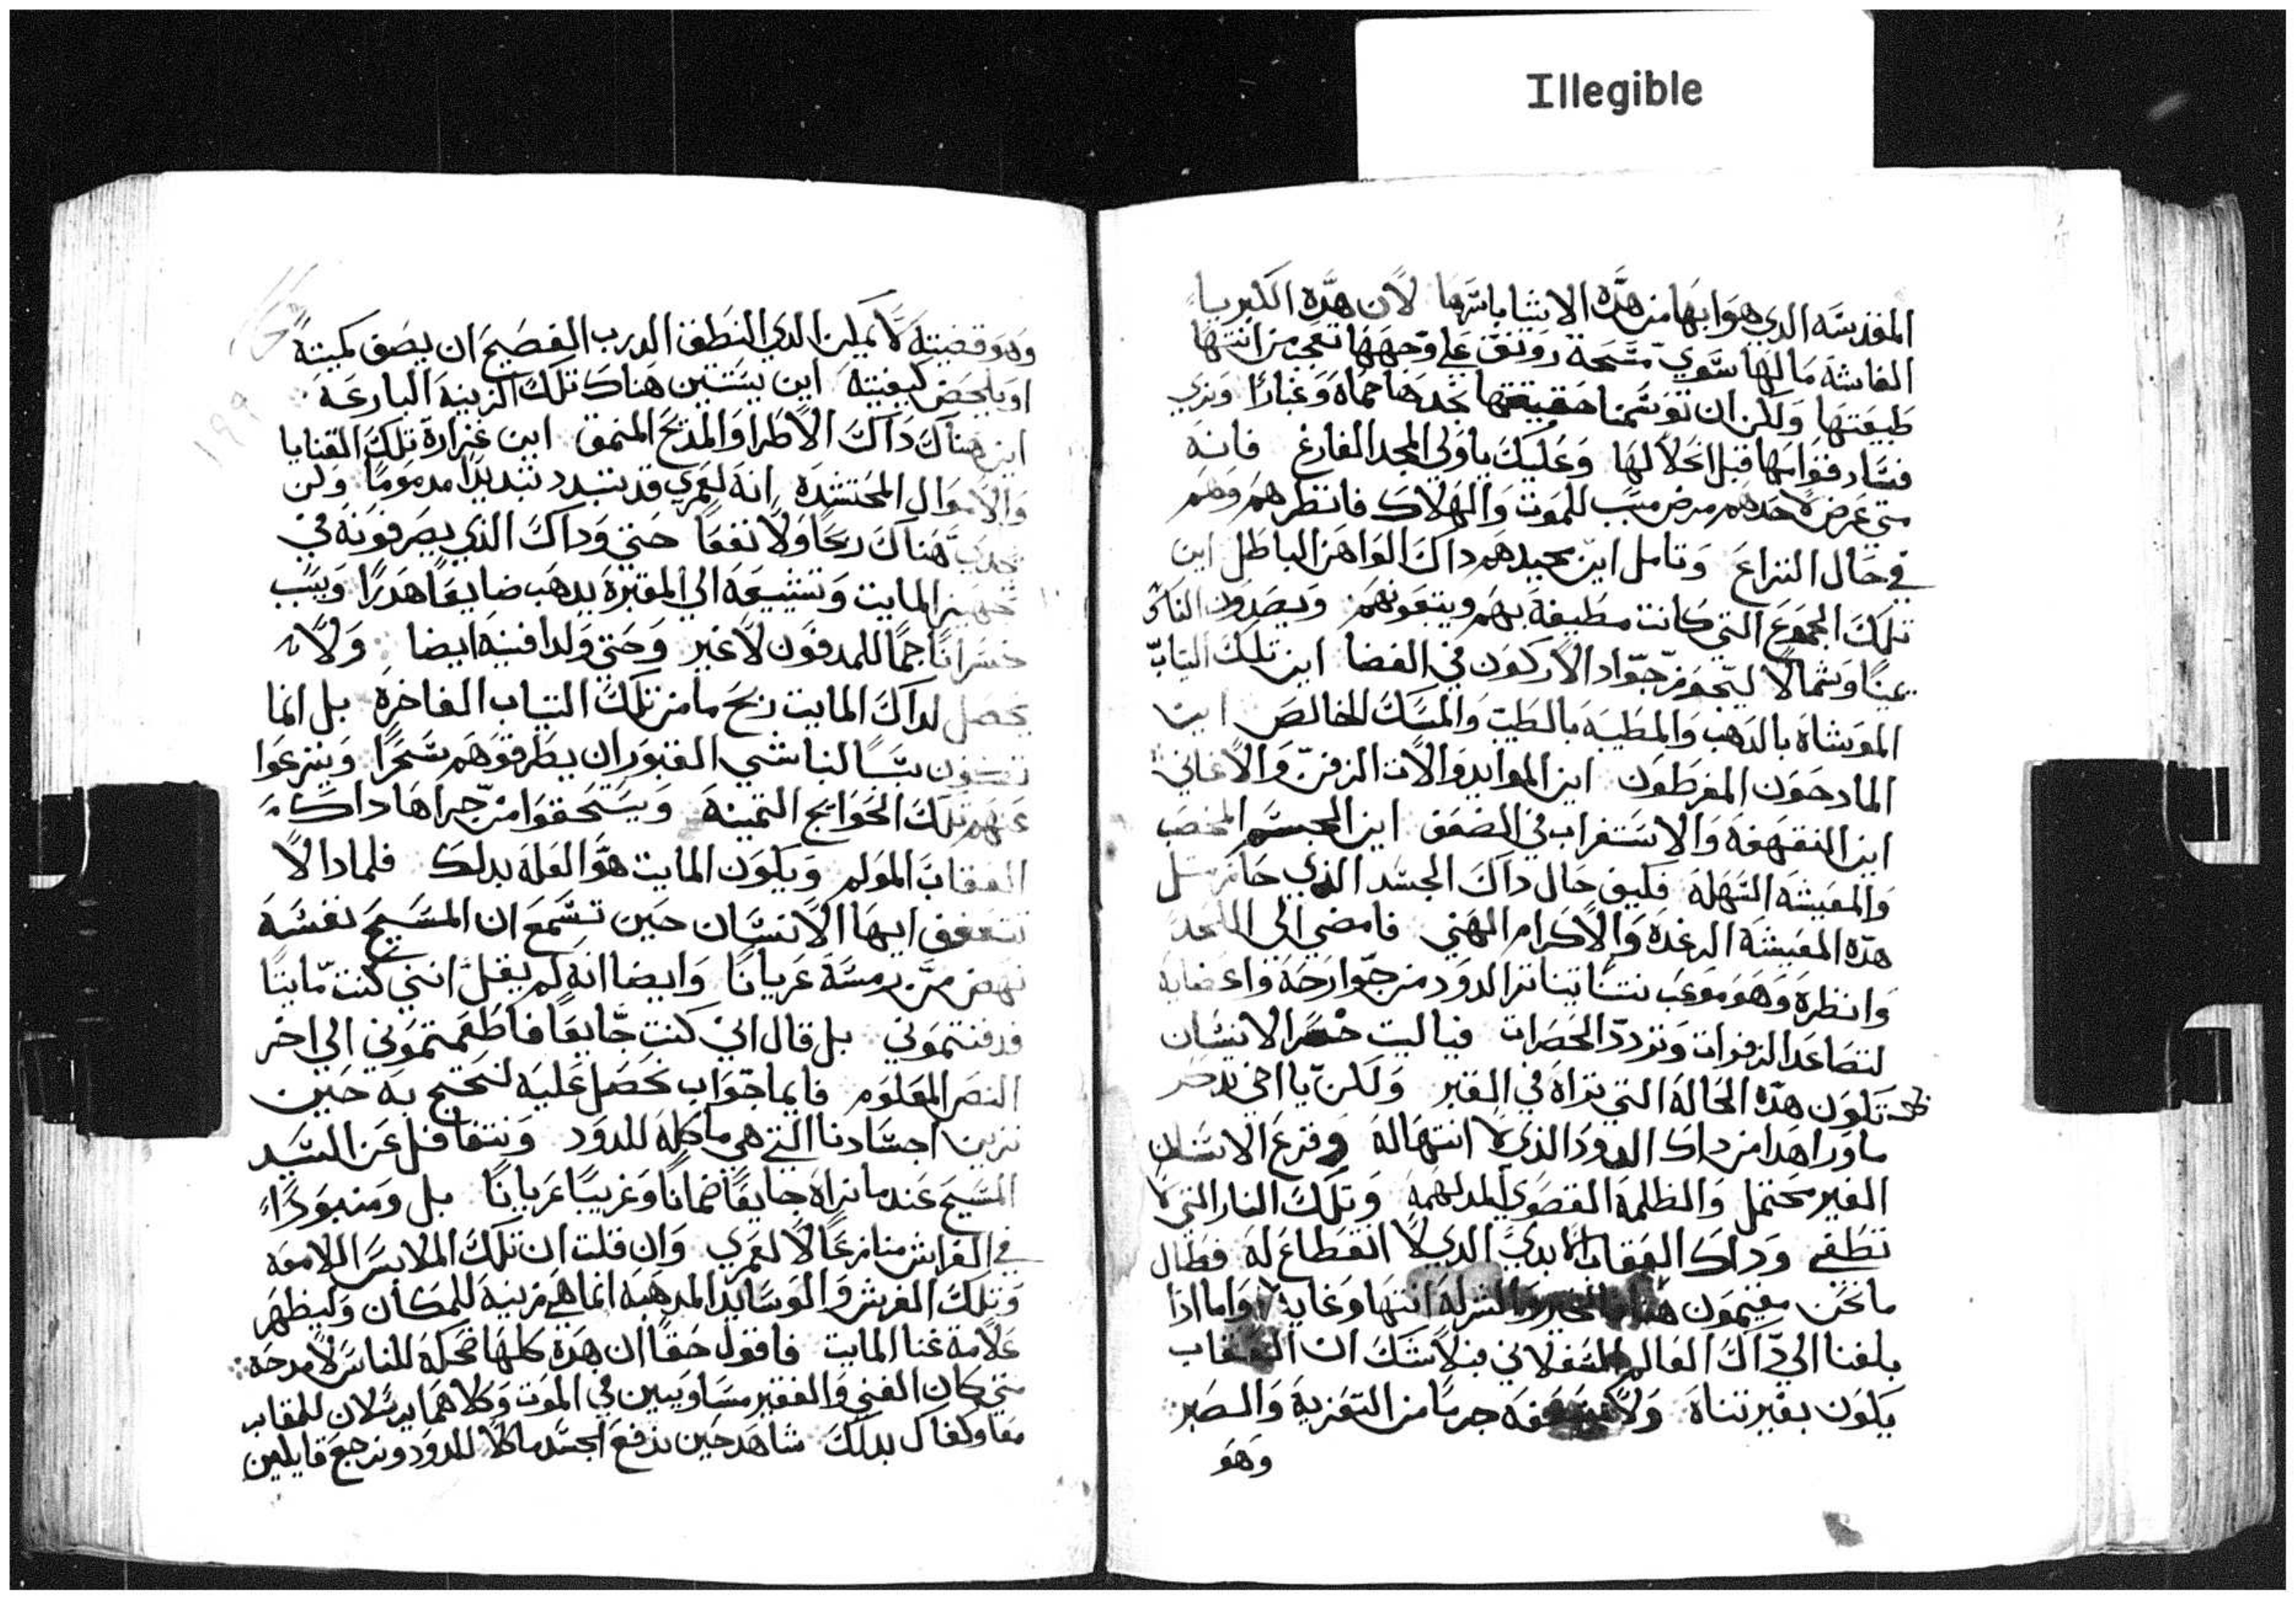 Illegible
المقدسه الذي هو ابهامن هذه الاشيا باسرها لان هذه الكبريا
الغاشه مالها سوي مسحة رونق علي وجهها تعجب من انتنها
طبيعتها ولكن ان توسمنا حقيقتها نجدها حماه وغبارا ونري
فساد قوامها قبل انحلالها وعليك ياولي المجد الفارغ فانه
متي عرض لاحدهم مرض مسبب للموت والهلاك فانظرهم وهم
في حال النزاع وتامل اين محيدهم داك الواهن الباطل اين
تلك الجموع التي كانت مطيفة بهم ويتبعونهم ويصدون الناس
يمينا وشمالا ليجوز جواد الاركون في الفضا اين تلك التياب
الموشاة بالدهب والمطيبه بالطيب والمسك الخالص اين
المادحون المفرطون اين الموايد والات الزفن والاغاني
اين القهقهة والاستغراب في الضحك اين الجسم المخصب
والمعيشه السهله فكيف حال داك الجسد الذي حاز مثل
هده المعيشة الرغدة والاكرام الهني فامضي الي اللحد
وانظره وهو موعب نتنا يتناتر الدود من جوارحه واعضايه
لتصاعد الزفرات وتردد الحصرات فياليت خسرا الانسان
تكون هده الحالة التي نراه في القبر ولكن يا اخي تدكر
ماورا هدا من داك الدود الذي لا انتها له وقزع الاسنان
الغير محتمل والظلمة القصوي المدلهمه وتلك النار التي لا
تطفي وداك العقاب الابدي الدي لا انقطاع له فطال
مانحن مقيمون انتها وغاية واما اذا
بلغنا الي داك العالم السفلاني فبلا شك ان العقاب
يكون بغير تناه ولا جرما من التعزية والصبر
وهو
وهو قضيته لا يمكن الدي النطق الدرب الفصيح ان يصف كميته
او يلحض كيفيته اين يستبين هناك تلك الزينة البارعه
اين هناك داك الاطرا والمديح المنمق اين غزارة تلك القنايا
والاموال المحتشده انه لعمري قد تبدد تبديدا مدموما ولن
هناك ربحا ولا نفعا حتي وداك الذي يصرفونه في
تجهيز المايت وتشييعه الي المقبرة يدهب ضايعا هدرا ويسبب
خسرانا جما للمدفون لا غير وحتي ولدافنيه ايضا ولانه
يحصل لداك المايت ربح ما من تلك التياب الفاخرة بل انما
تكون سببا لنباشي القبور ان يطرقوهم سحرا وينزعوا
عنهم تلك الحوايج التمينة ويستحقوا من جراها داك
العقاب المولم ويكون المايت هو العلة بدلك فلمادا لا
تتعفف ايها الانسان حين تسمع ان المسيح نفسه
نهض من رمسه عريانا وايضا انه لم يقل انني كنت مايتا
فدفنتموني بل قال اني كنت جايعا فاطعمتموني الي اخر
النص المعلوم فايما جواب نحصل عليه لنحتج به حين
نزين اجسادنا التي هي ماكلة للدود ونتغافل عن السيد
المسيح عند ما نراه جايعا ضمانا وغريبا عريانا بل ومنبودا
في الفراش منازعا لا لعمري وان قلت ان تلك الملابس اللامعه
وتلك الفرش والوسايد المدهبة انما هي مزينة للمكان وليظهر
علامة غنا المايت فاقول حقا ان هده كلها ضحكة للناس لا مدحة
متي كان الغني والفقير مساويين في الموت وكلاهما يرسلان للمقابر
معا وكفاك بدلك شاهد حين ندفع الجسد ماكلا للدود ونرجع قايلين
١٩٩